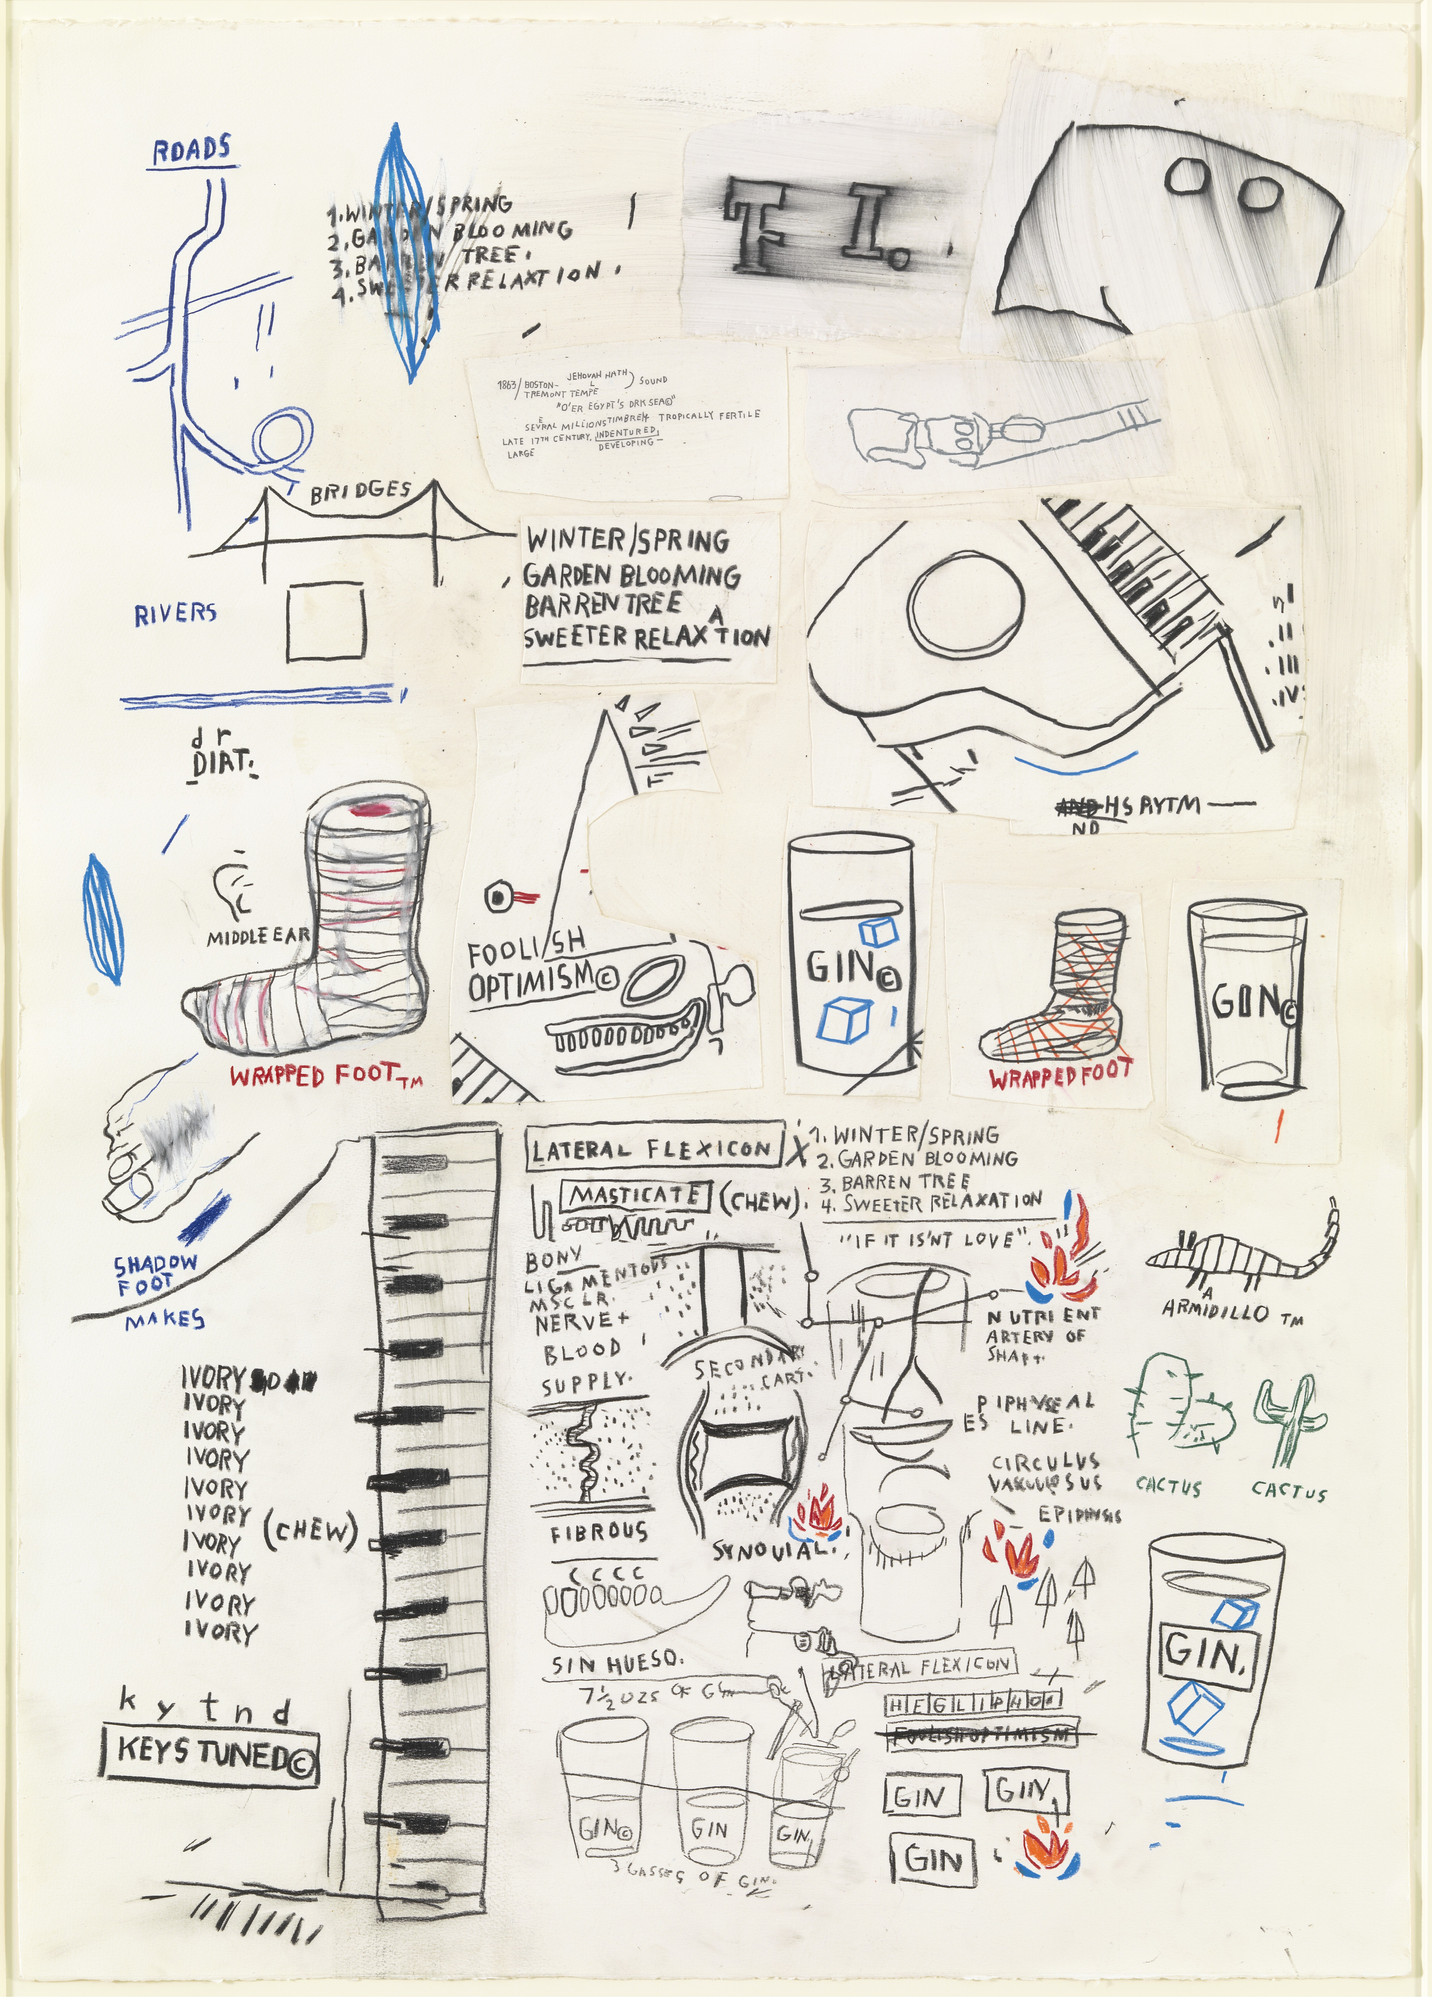 ROADS
1. WINTER/SPRING
2. GARDEN BLOOMING
3. BARREN TREE.
4. SWEETER RELAXTION.
F I.
1863/ BOSTON-
TREMONT TEMPE
L
JEHOVAH HATH
SOUND
"O'ER EGYPT'S DRK SEA©"
A
SEVRAL MILLIONS TIMBREH TROPICALLY FERTILE
E
LATE 17TH CENTURY, INDENTURED,
LARGE DEVELOPING-
BRIDGES
WINTER/SPRING
GARDEN BLOOMING
BARREN TREE
A
SWEETER RELAXTION
RIVERS
I
.II
.III
.IV
d r
DIAT.
AND HS RYTM —
ND
MIDDLE EAR
FOOLISH
OPTIMISM©
GIN©
GON©
WRAPPED FOOT TM
WRAPPED FOOT
LATERAL FLEXICON X
1. WINTER/SPRING
2. GARDEN BLOOMING
3. BARREN TREE
4. SWEETER RELAXATION
MASTICATE (CHEW).
"IF IT IS'NT LOVE".
SHADOW
FOOT
MAKES
BONY
LIGAMENTOUS
MSCLR.
NERVE+
BLOOD
SUPPLY.
SECONDARY
CART.
NUTRIENT
ARTERY OF
SHAFT.
A
ARMIDILLO TM
IVORY SOAP
IVORY
IVORY
IVORY
IVORY
IVORY
(CHEW)
IVORY
IVORY
IVORY
IVORY
PIPHYSEAL
ES LINE.
CIRCULUS
VASCULOSUS
EPIPHYSIS
CACTUS
CACTUS
FIBROUS
SYNOVIAL.
CCCC
SIN HUESO.
7½ OZS OF GIN
LATERAL FLEXICON
FOOLISH OPTIMISM
GIN.
k y t n d
KEYS TUNED©
GIN©
GIN
GIN.
3 GASSES OF GIN.
GIN
GIN.
GIN